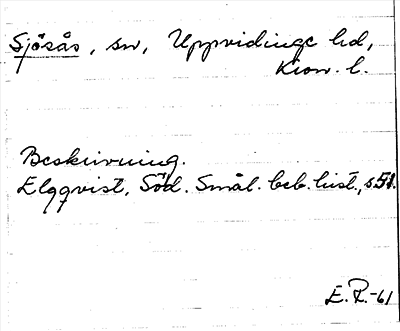 Sjösås, sn, Uppvidinge hd,
Kron. l.
Beskrivning.
Elgqvist, Söd. Smål. beb. hist., s. 51.
E. R. -61